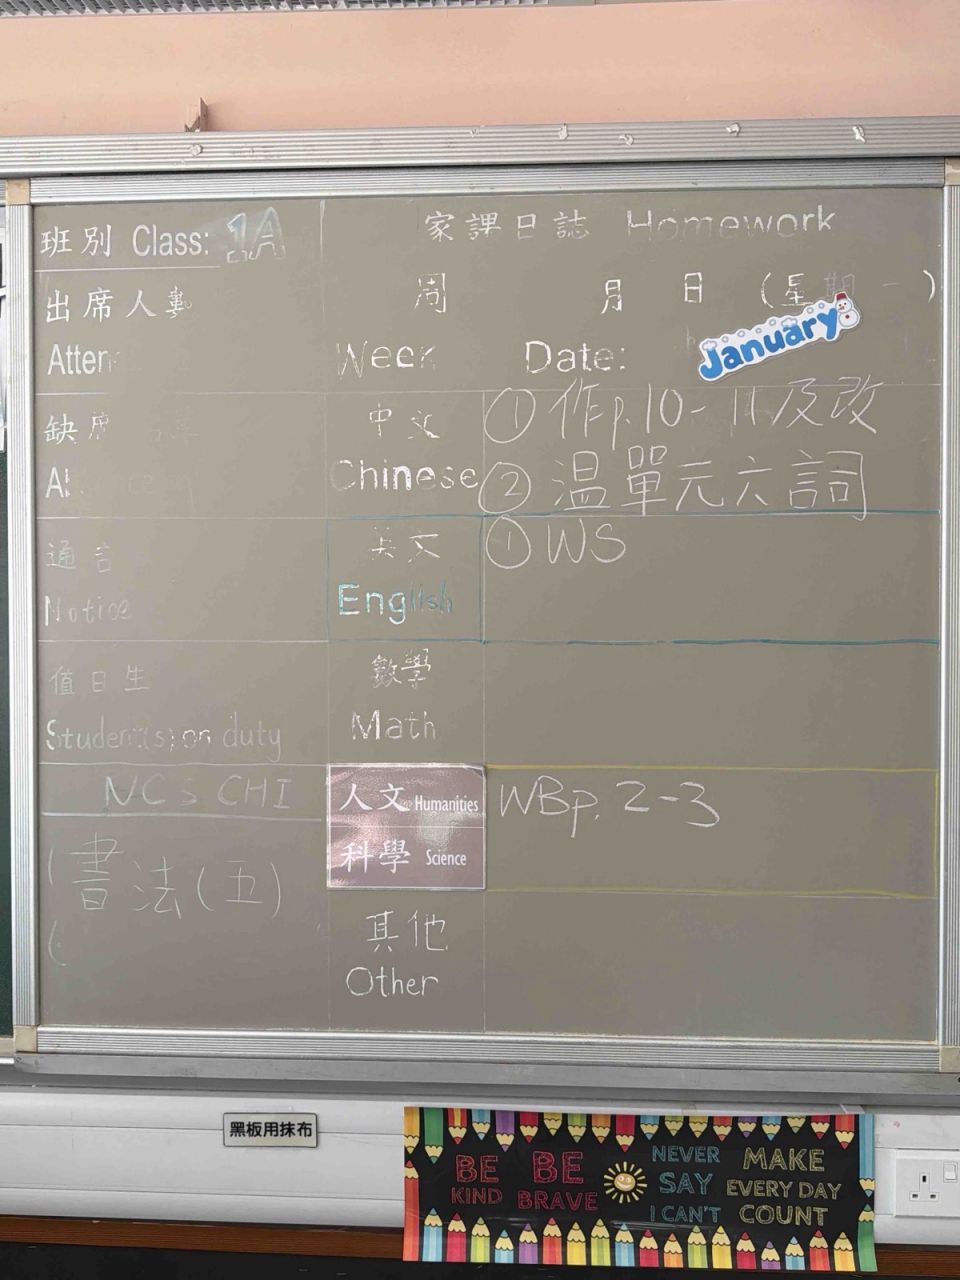 班別 Class: 1A
家課日誌 Homework
出席人數
周 月 日 (星期一)
Week Date: January
缺席
中文 ① 作p.10-11及改
Chinese ② 温單元六詞
通告
英文 ① WS
Notice
English
值日生
數學
Student(s) on duty
Math
NCS CHI
人文 Humanities WBp. 2-3
書法(五)
科學 Science
其他
Other
黑板用抹布
BE KIND
BE BRAVE
NEVER SAY I CAN'T
MAKE EVERY DAY COUNT